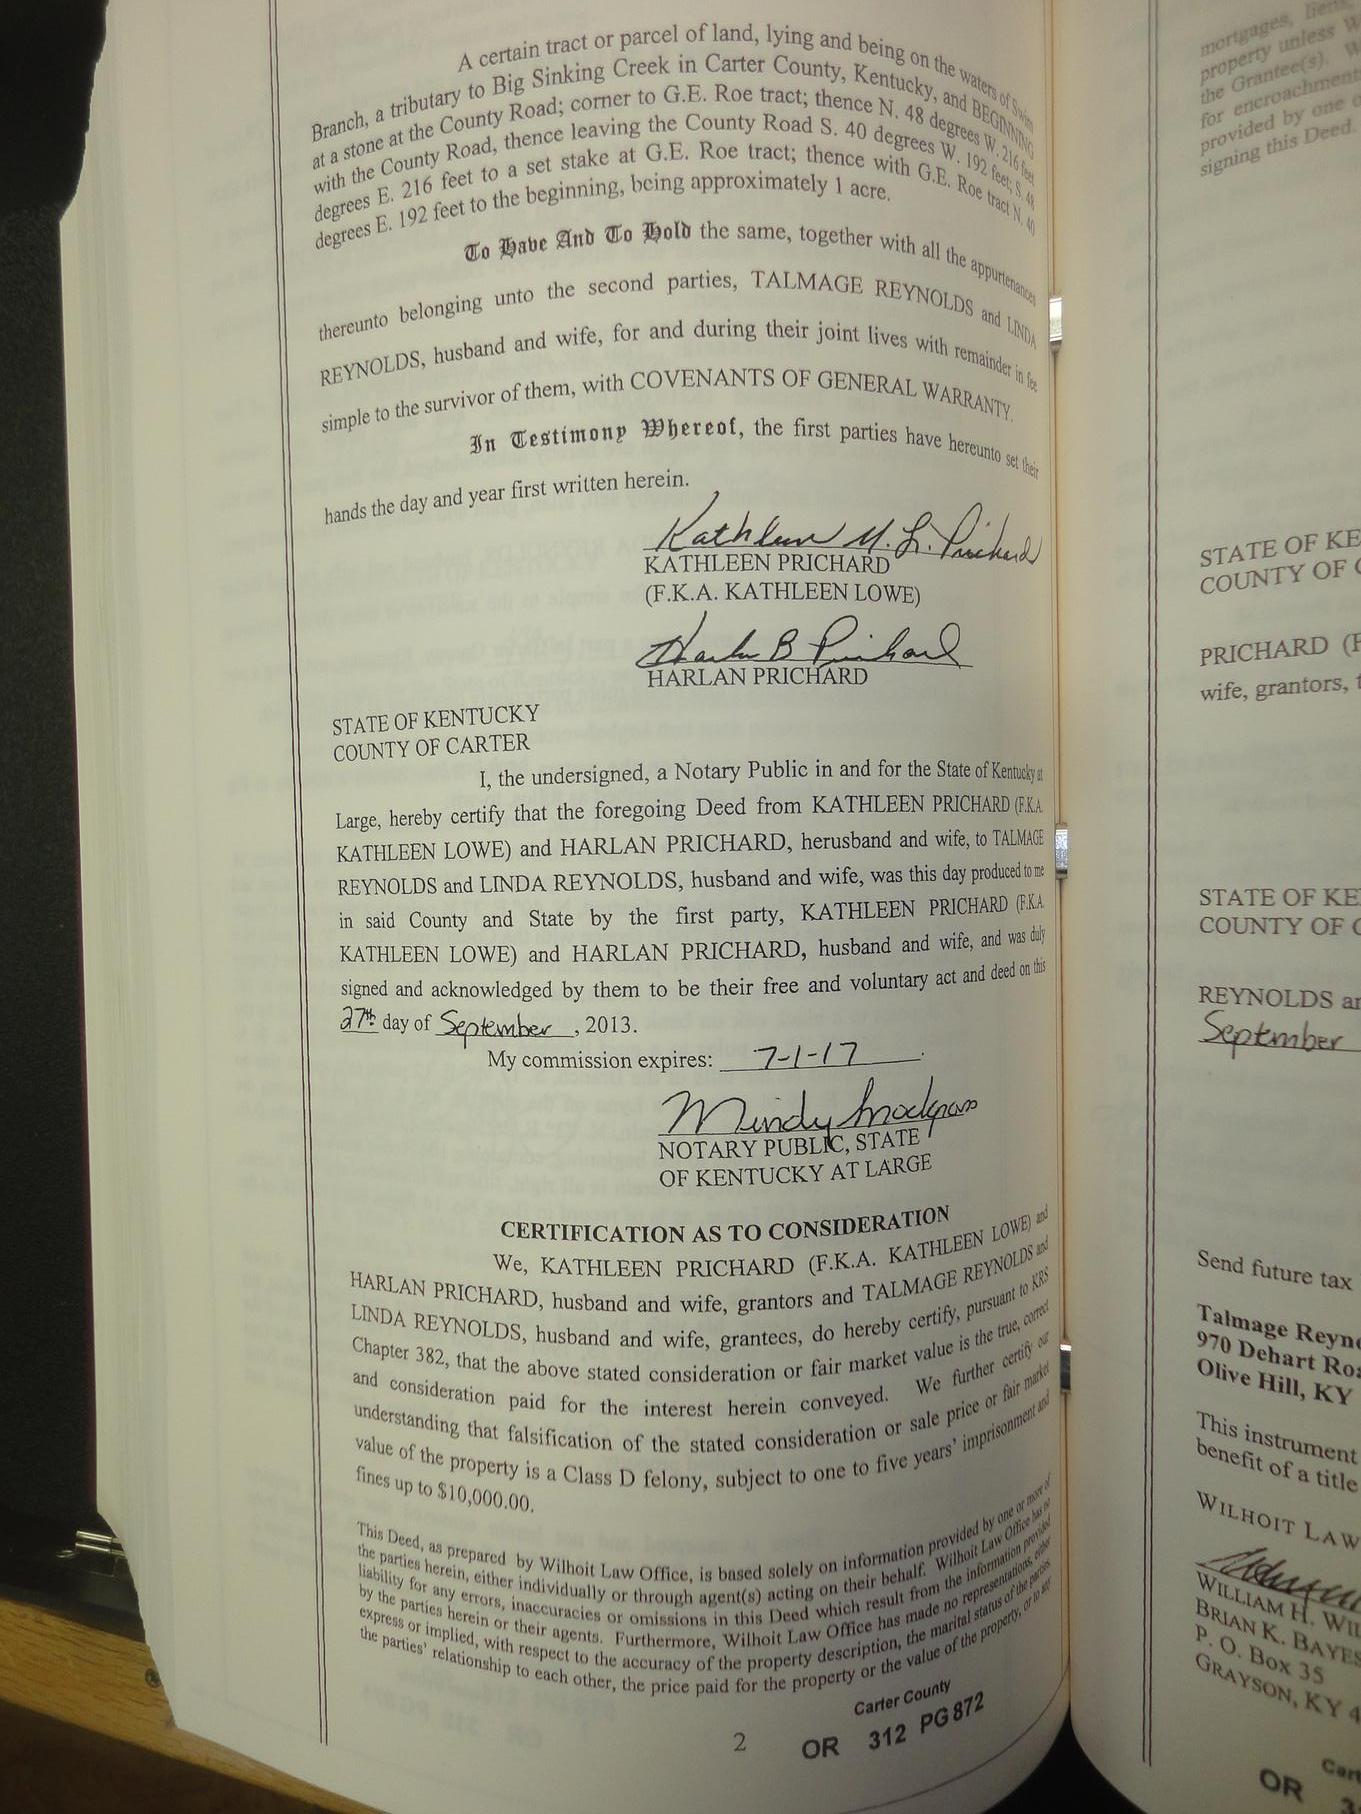 A certain tract or parcel of land, lying and being on the waters of Swim
Branch, a tributary to Big Sinking Creek in Carter County, Kentucky, and BEGINNING
at a stone at the County Road; corner to G.E. Roe tract; thence N. 48 degrees W. 216 feet
with the County Road, thence leaving the County Road S. 40 degrees W. 192 feet; S. 48
degrees E. 216 feet to a set stake at G.E. Roe tract; thence with G.E. Roe tract N. 40
degrees E. 192 feet to the beginning, being approximately 1 acre.
To Have And To Hold the same, together with all the appurtenances
thereunto belonging unto the second parties, TALMAGE REYNOLDS and LINDA
REYNOLDS, husband and wife, for and during their joint lives with remainder in fee
simple to the survivor of them, with COVENANTS OF GENERAL WARRANTY.
In Testimony Whereof, the first parties have hereunto set their
hands the day and year first written herein.
Kathleen M. L. Prichard
KATHLEEN PRICHARD
(F.K.A. KATHLEEN LOWE)
Harlan B Prichard
HARLAN PRICHARD
STATE OF KENTUCKY
COUNTY OF CARTER
I, the undersigned, a Notary Public in and for the State of Kentucky at
Large, hereby certify that the foregoing Deed from KATHLEEN PRICHARD (F.K.A.
KATHLEEN LOWE) and HARLAN PRICHARD, herusband and wife, to TALMAGE
REYNOLDS and LINDA REYNOLDS, husband and wife, was this day produced to me
in said County and State by the first party, KATHLEEN PRICHARD (F.K.A.
KATHLEEN LOWE) and HARLAN PRICHARD, husband and wife, and was duly
signed and acknowledged by them to be their free and voluntary act and deed on this
27th day of September, 2013.
My commission expires: 7-1-17
Mindy Snodgrass
NOTARY PUBLIC, STATE
OF KENTUCKY AT LARGE
CERTIFICATION AS TO CONSIDERATION
We, KATHLEEN PRICHARD (F.K.A. KATHLEEN LOWE) and
HARLAN PRICHARD, husband and wife, grantors and TALMAGE REYNOLDS and
LINDA REYNOLDS, husband and wife, grantees, do hereby certify, pursuant to KRS
Chapter 382, that the above stated consideration or fair market value is the true, correct
and consideration paid for the interest herein conveyed. We further certify our
understanding that falsification of the stated consideration or sale price or fair market
value of the property is a Class D felony, subject to one to five years' imprisonment and
fines up to $10,000.00.
This Deed, as prepared by Wilhoit Law Office, is based solely on information provided by one or more of
the parties herein, either individually or through agent(s) acting on their behalf. Wilhoit Law Office has no
liability for any errors, inaccuracies or omissions in this Deed which result from the information provided
by the parties herein or their agents. Furthermore, Wilhoit Law Office has made no representations, either
express or implied, with respect to the accuracy of the property description, the marital status of the parties
the parties' relationship to each other, the price paid for the property or the value of the property, or to any
2
Carter County
OR 312 PG 872
mortgages, liens,
property unless
the Grantee(s).
for encroachment
provided by one
signing this Deed.
STATE OF KE
COUNTY OF C
PRICHARD (F
wife, grantors, t
STATE OF KE
COUNTY OF C
REYNOLDS an
September
Send future tax
Talmage Reyno
970 Dehart Roa
Olive Hill, KY
This instrument
benefit of a title
WILHOIT LAW
WILLIAM H. WIL
BRIAN K. BAYES
P. O. Box 35
GRAYSON, KY 4
Cart
OR 3